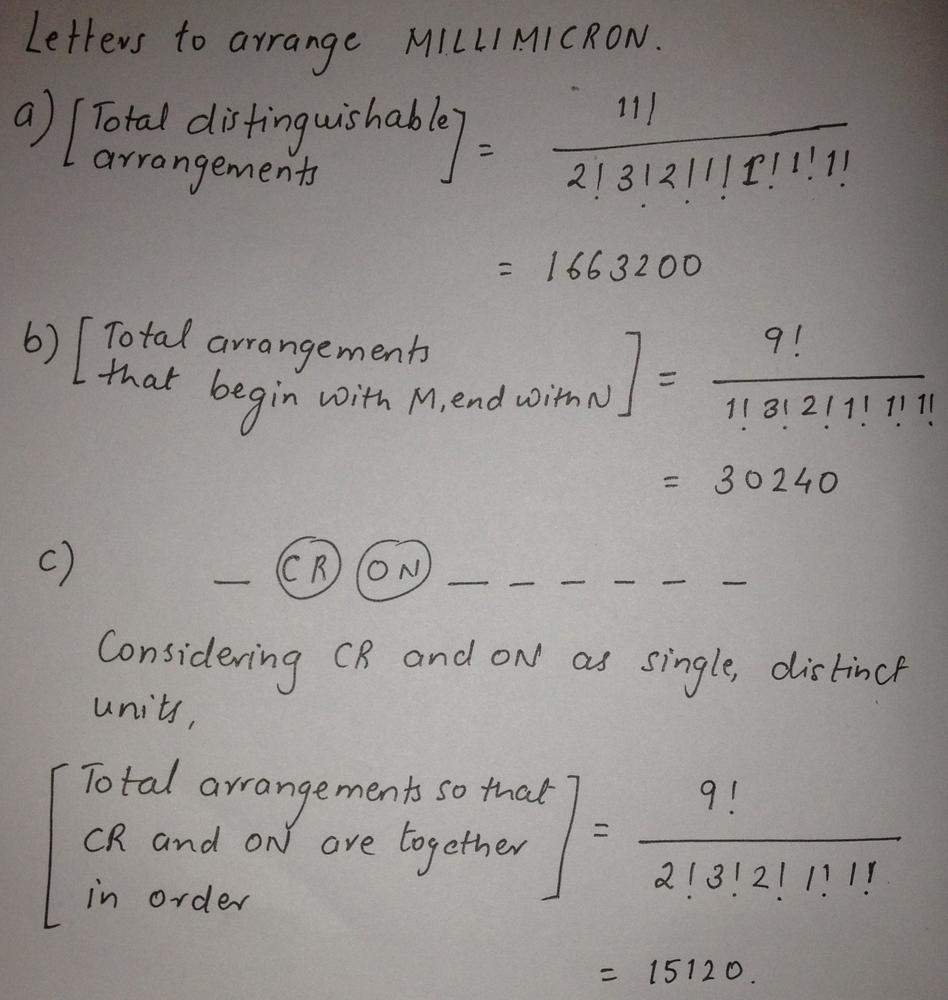 Letters to arrange MILLIMICRON.
a) [Total distinguishable arrangements] = 11! / 2! 3! 2! 1! 1! 1! 1!
= 1663200
b) [Total arrangements that begin with M, end with N] = 9! / 1! 3! 2! 1! 1! 1!
= 30240
c) _ (CR) (ON) _ _ _ _ _ _
Considering CR and ON as single, distinct
units,
[Total arrangements so that CR and ON are together in order] = 9! / 2! 3! 2! 1! 1!
= 15120.